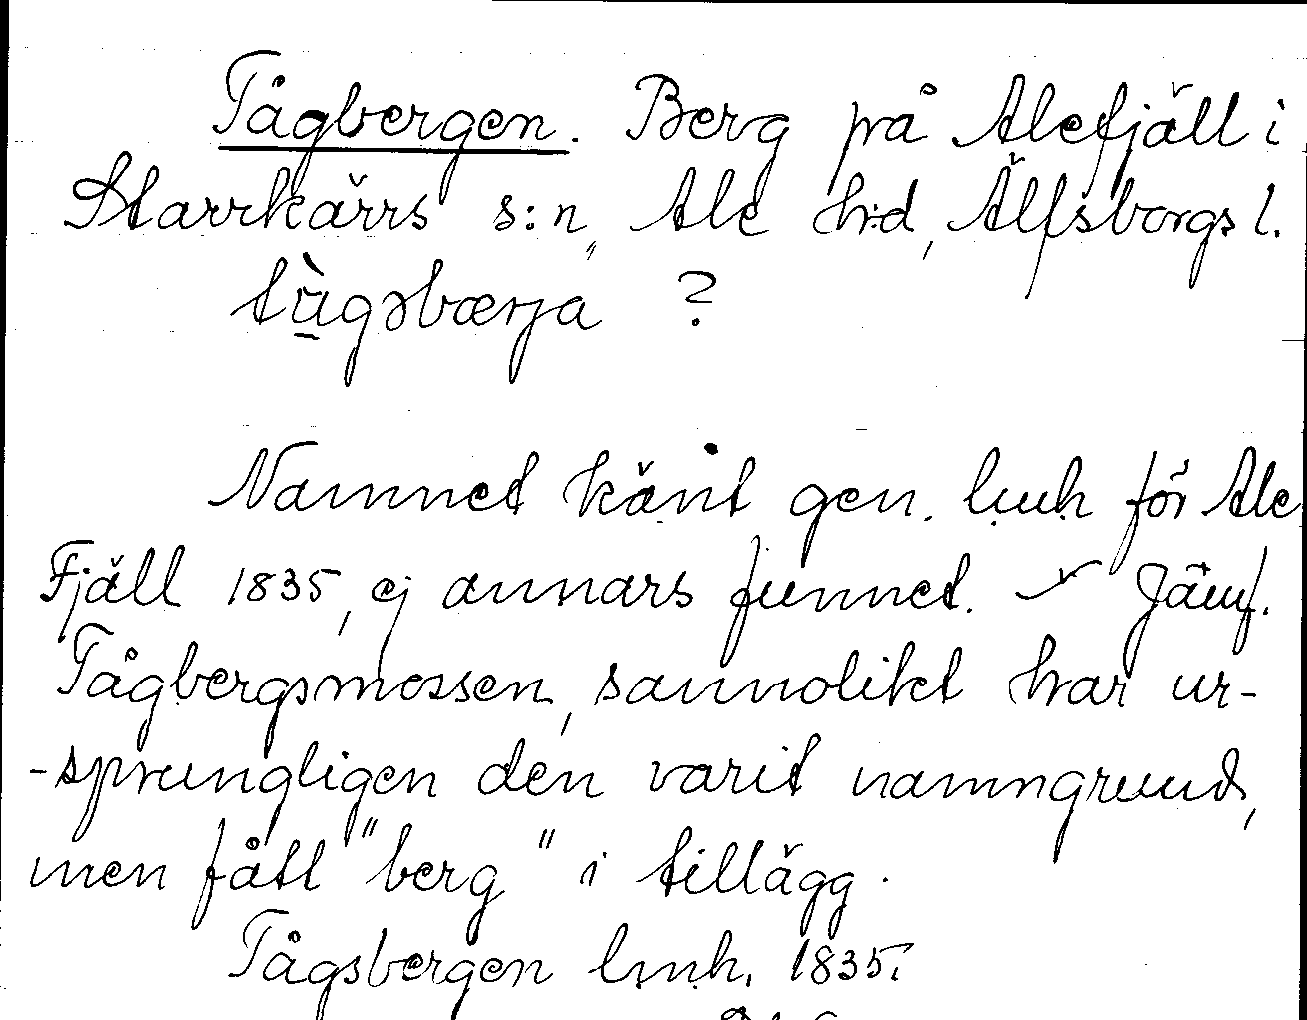 Tågbergen. Berg på Alefjäll i
Starrkärrs s:n, Ale hrd, Älfsborgs l.
tùgsbærja ?
Namnet känt gen. lmh för Ale
Fjäll 1835, ej annars funnet. Jämf.
Tågbergsmossen, sannolikt har ur-
-sprungligen den varit namngrund,
men fått "berg" i tillägg.
Tågsbergen lmh. 1835.